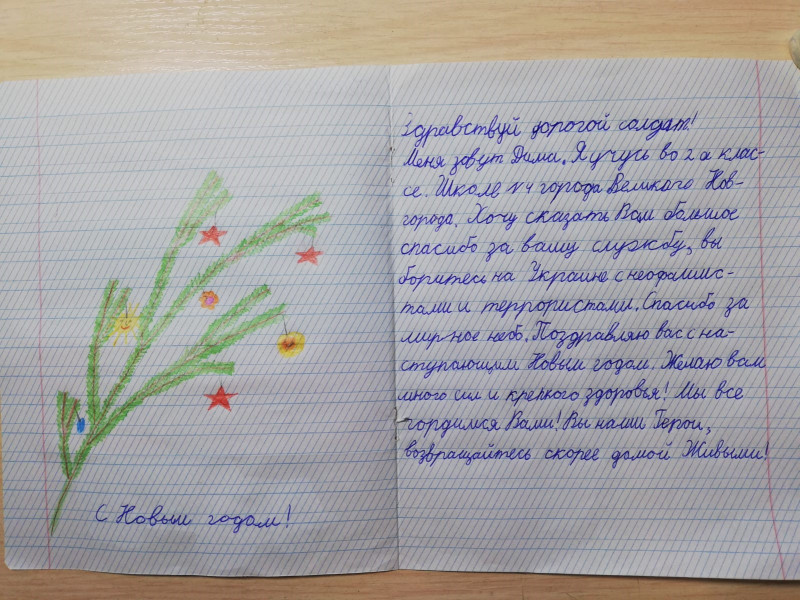 С Новым годом!
Здравствуй дорогой солдат!
Меня зовут Дима. Я учусь во 2 а клас-
се. Школе №4 города Великаго Нов-
города. Хочу сказать Вам большое
спасибо за вашу службу, вы
боритесь на Украине с неофашис-
тами и террористами. Спасибо за
мирное небо. Поздравляю вас с на-
ступающим Новым годом. Желаю вам
много сил и крепкого здоровья! Мы все
гордимся Вами! Вы наши Герои,
возвращайтесь скорее домой Живыми!